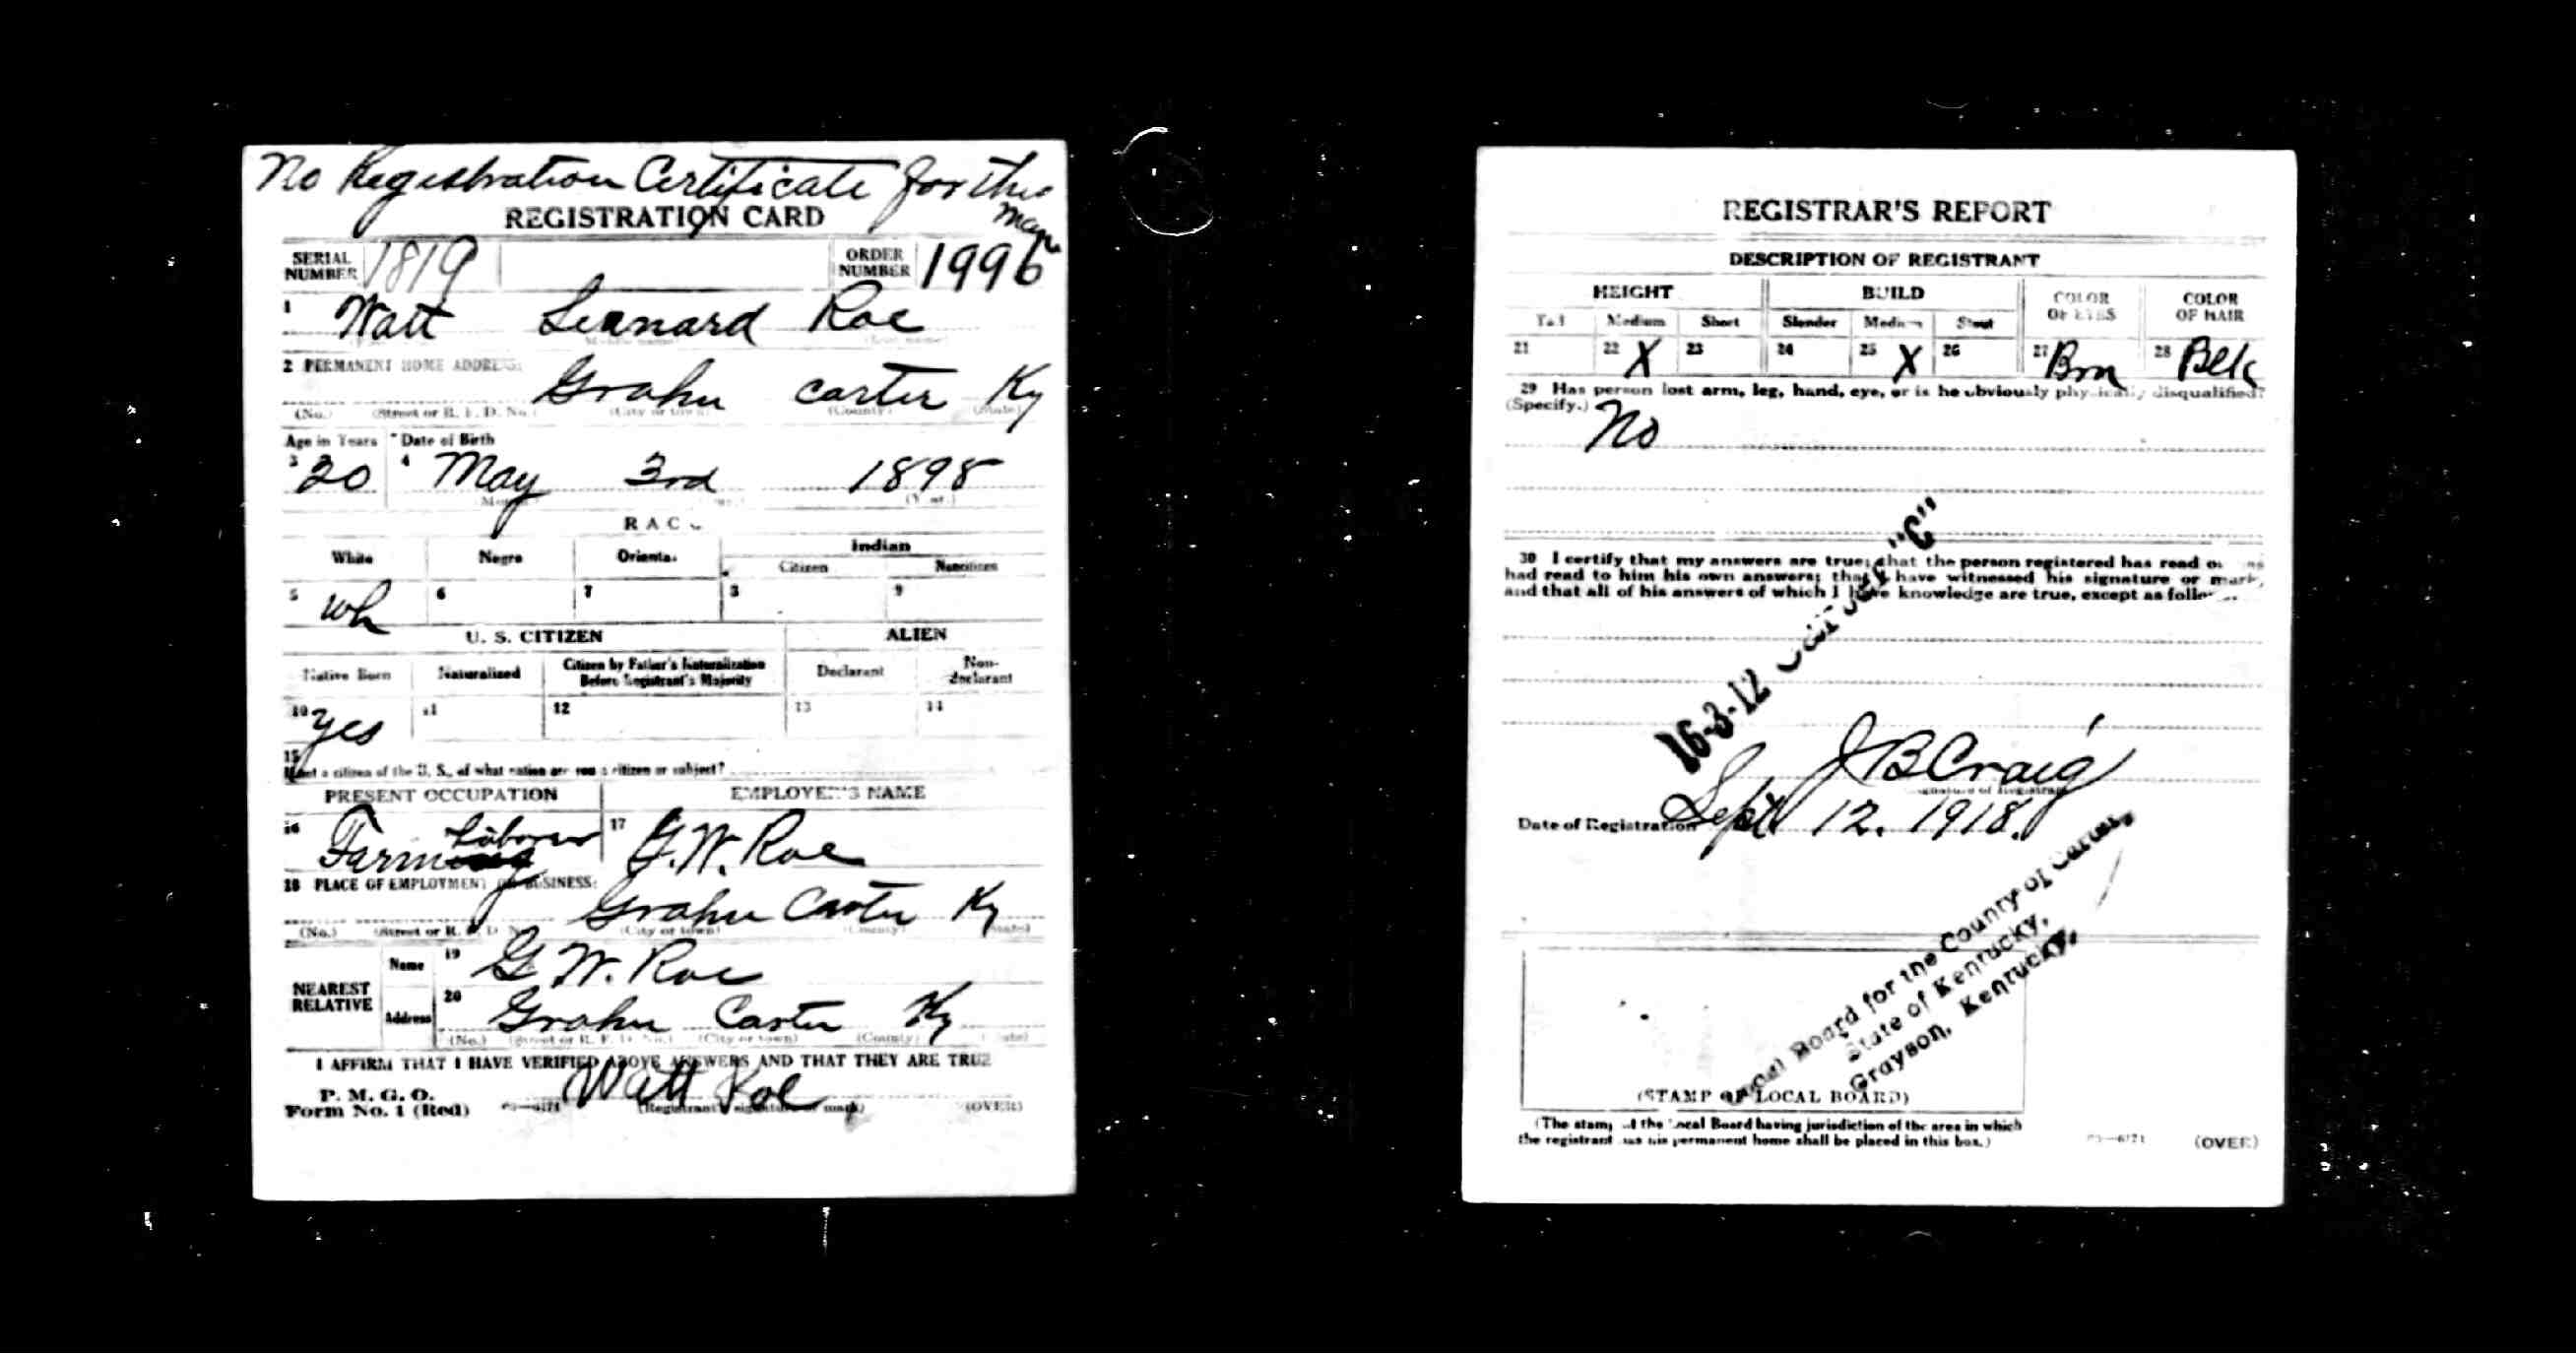 No Registration Certificate for this
man
REGISTRATION CARD
SERIAL NUMBER 1819 ORDER NUMBER 1996
1 Watt Leonard Roe
2 PERMANENT HOME ADDRESS:
Grahn Carter Ky
(No.) (Street or R. F. D. No.) (City or town) (County) (State)
Age in Years Date of Birth
3 20 4 May 3rd 1898
RACE
White Negro Oriental Indian
Citizen Noncitizen
5 Wh 6 7 8 9
U. S. CITIZEN ALIEN
Native Born Naturalized Citizen by Father's Naturalization Before Registrant's Majority Declarant Non-declarant
10 Yes 11 12 13 14
15
If not a citizen of the U. S., of what nation are you a citizen or subject?
PRESENT OCCUPATION EMPLOYER'S NAME
16 Farm Laborer 17 G. W. Roe
18 PLACE OF EMPLOYMENT OR BUSINESS:
Grahn Carter Ky
(No.) (Street or R. F. D. No.) (City or town) (County) (State)
NEAREST RELATIVE
Name 19 G W. Roe
Address 20 Grahn Carter Ky
(No.) (Street or R. F. D. No.) (City or town) (County) (State)
I AFFIRM THAT I HAVE VERIFIED ABOVE ANSWERS AND THAT THEY ARE TRUE
P. M. G. O.
Form No. 1 (Red) Watt Roe
(Registrant's signature or mark) (OVER)
REGISTRAR'S REPORT
DESCRIPTION OF REGISTRANT
HEIGHT BUILD COLOR OF EYES COLOR OF HAIR
Tall Medium Short Slender Medium Stout
21 22 X 23 24 25 X 26 27 Brn 28 Blk
29 Has person lost arm, leg, hand, eye, or is he obviously physically disqualified?
(Specify.) No
30 I certify that my answers are true; that the person registered has read or has
had read to him his own answers; that I have witnessed his signature or mark,
and that all of his answers of which I have knowledge are true, except as follows:
16-3-12 "C"
J B Craig
(Signature of Registrar)
Date of Registration Sept 12. 1918.
Local Board for the County of Carter,
State of Kentucky,
Grayson, Kentucky,
(STAMP OF LOCAL BOARD)
(The stamp of the Local Board having jurisdiction of the area in which
the registrant has his permanent home shall be placed in this box.)
(OVER)